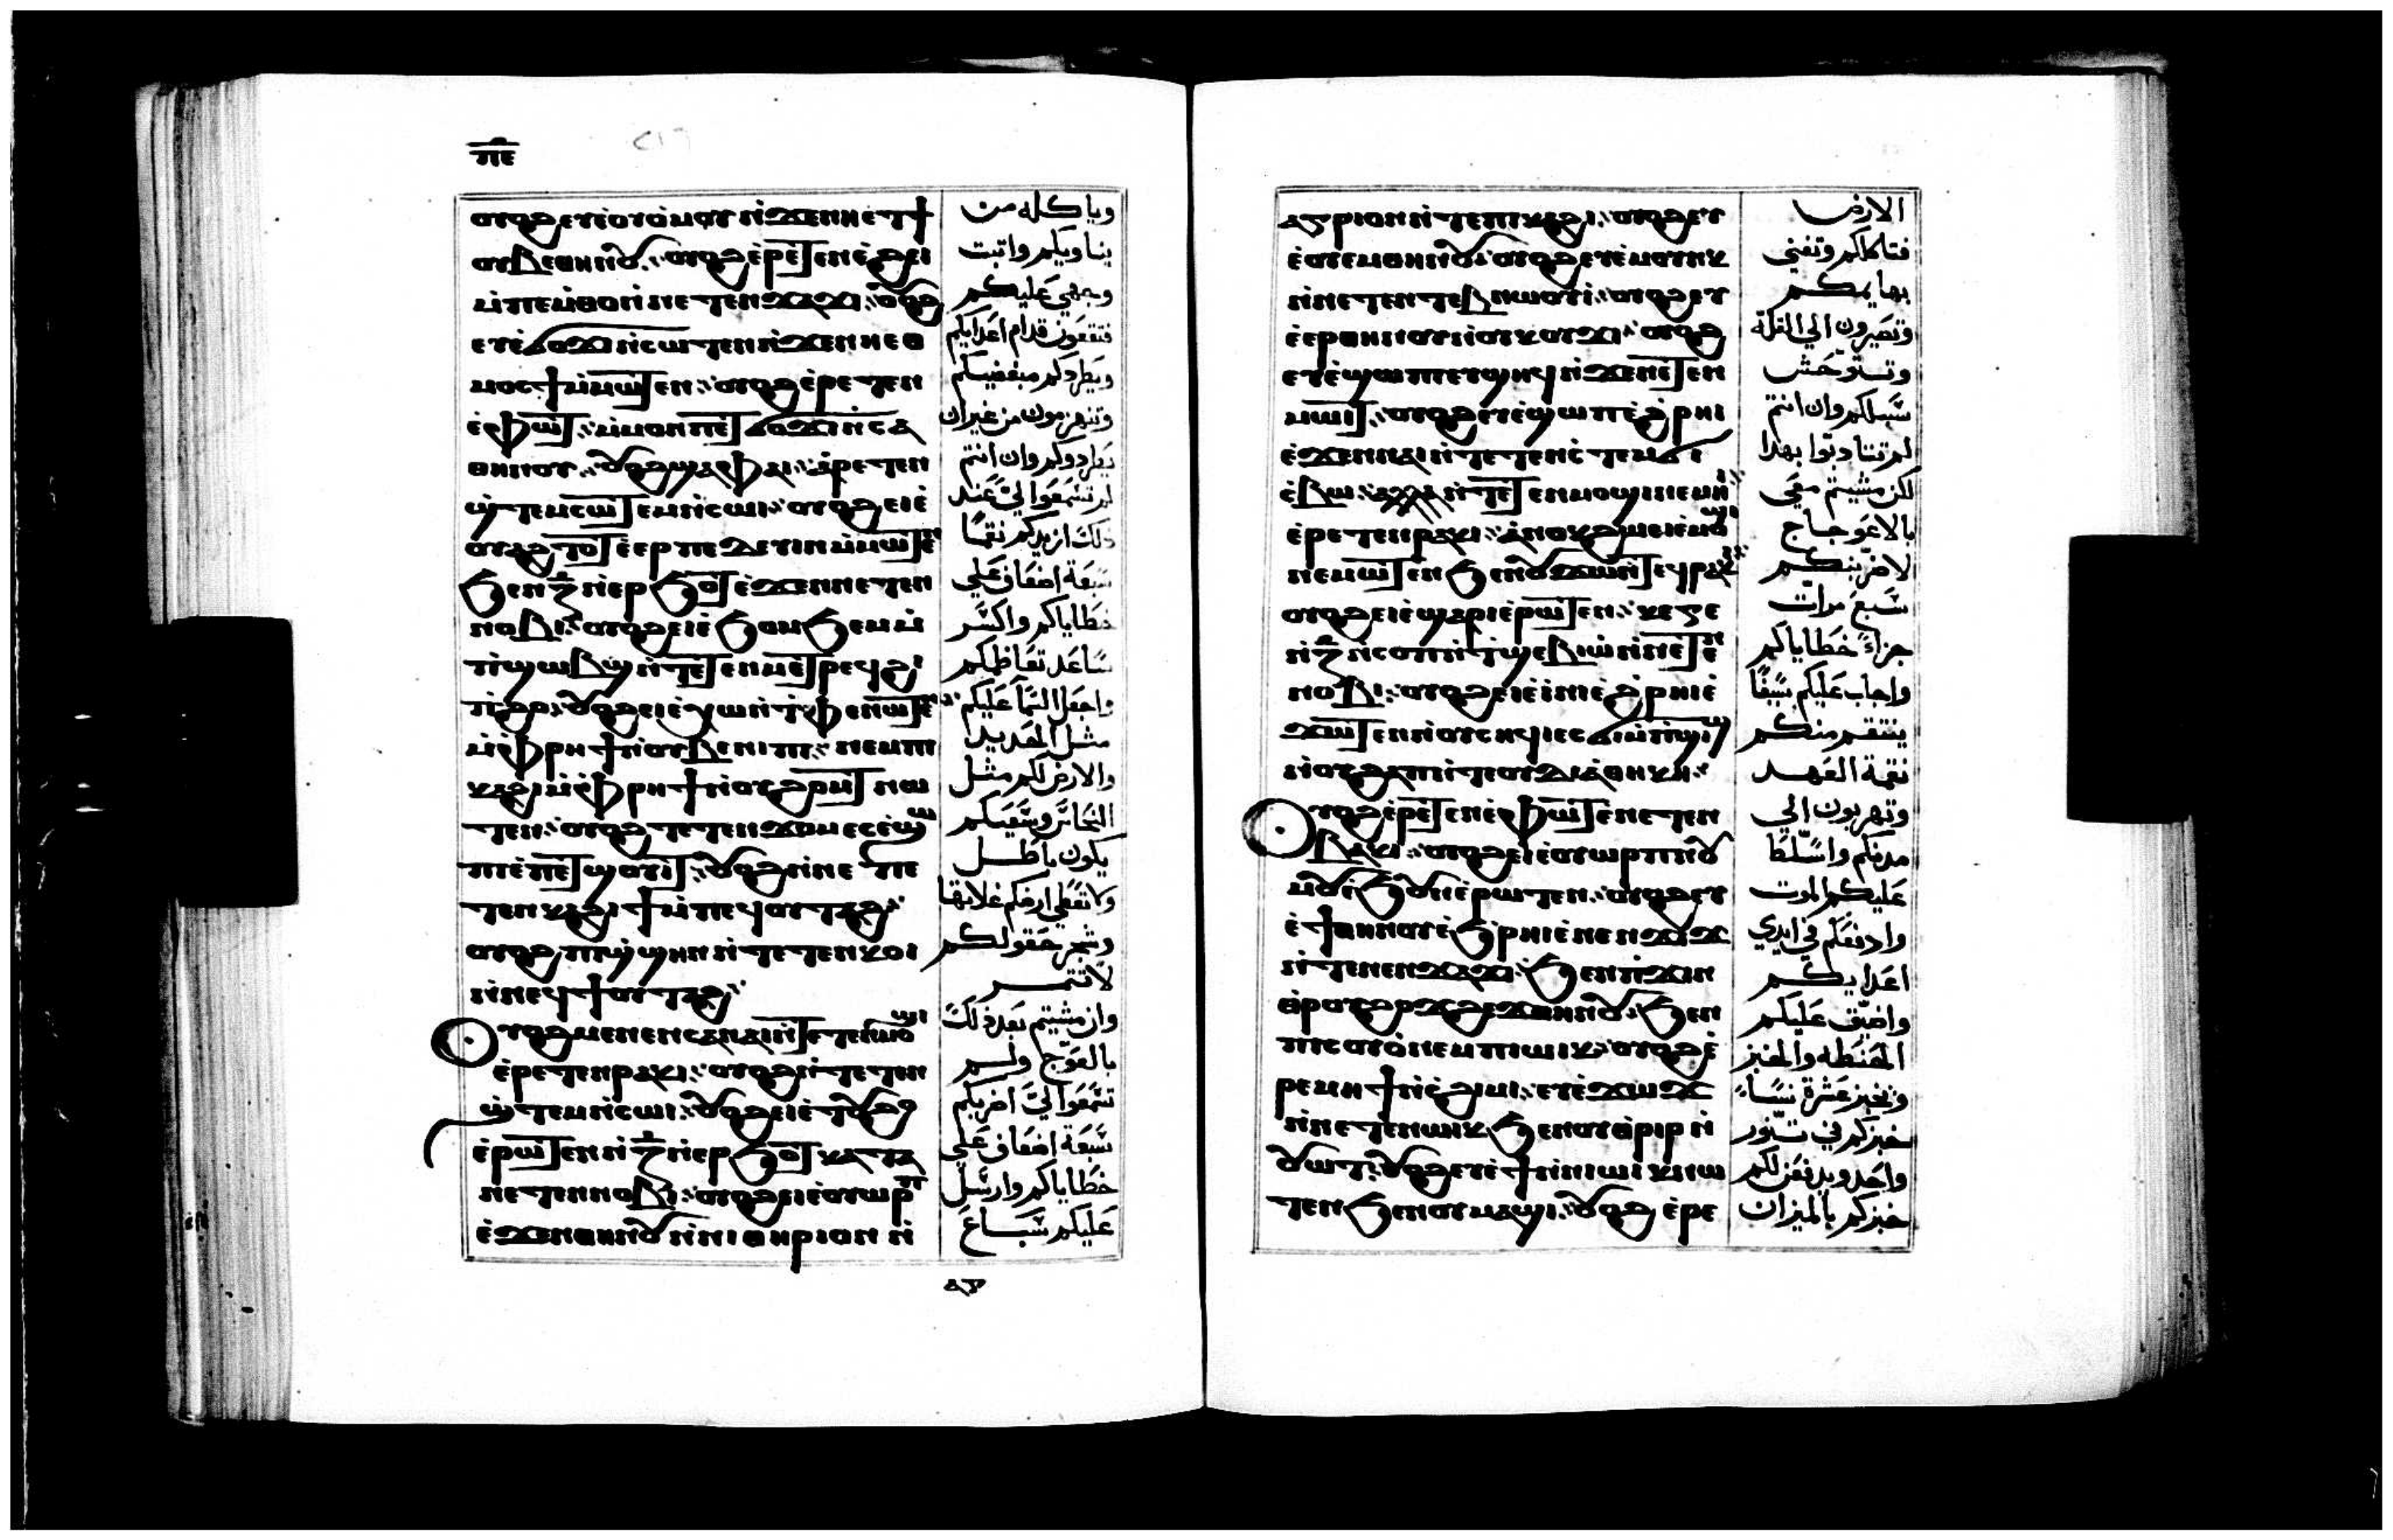 ⲡⲉ
ⲟⲩⲟϩ ⲉⲩⲉ̀ⲟⲩⲟ̀ⲙⲟⲩ ⲛ̀ϫⲉⲛⲏⲉⲧϯ
ⲟⲩⲃⲉⲑⲏⲛⲟⲩ: ⲟⲩⲟϩ ⲉ̀ⲣⲉⲧⲉⲛⲉ̀ϩⲉⲓ
ⲙ̀ⲡⲉⲙ̀ⲑⲟ ⲛ̀ⲛⲉⲧⲉⲛϫⲁϫⲓ: ⲟⲩⲟϩ
ⲉⲩⲉ̀ϭⲟϫⲓ ⲛ̀ⲥⲱⲧⲉⲛ ⲛ̀ϫⲉⲛⲏⲉⲑ
ⲙⲟⲥϯ ⲙ̀ⲙⲱⲧⲉⲛ: ⲟⲩⲟϩ ⲉ̀ⲣⲉⲧⲉⲛ
ⲉ̀ⲫⲱⲧ: ⲙ̀ⲙⲟⲛ ⲡⲉⲧϭⲟϫⲓ ⲛ̀ⲥⲁ
ⲑⲏⲛⲟⲩ: ⲟⲩⲟϩ ϣⲁⲫⲁⲓ: ⲁ̀ⲣⲉⲧⲉⲛ
ϣ̀ⲧⲉⲙⲥⲱⲧⲉⲙ ⲛ̀ⲥⲱⲓ: ⲟⲩⲟϩ ⲉⲓⲉ̀
ⲟⲩⲁϩⲧⲟⲧ ⲉ̀ⲉⲣⲡⲉⲇⲉⲩⲓⲛ ⲙ̀ⲙⲱⲧⲉⲛ
ϧⲉⲛ ⲍ̅ ⲛ̀ⲉⲣϧⲟⲧ ⲉ̀ϫⲉⲛⲛⲉⲧⲉⲛ
ⲛⲟⲃⲓ: ⲟⲩⲟϩ ⲉⲓⲉ̀ϧⲟⲙϧⲉⲙ ⲙ̀
ⲡϣⲱϣ ⲛ̀ⲧⲉⲧⲉⲛⲙⲉⲧⲣⲉϥϭⲓ
ⲡ̀ϩⲟ: ⲟⲩⲟϩ ⲉⲓⲉ̀ⲭⲱ ⲛ̀ⲧⲫⲉ ⲛⲱⲧⲉⲛ
ⲙ̀ⲫⲣⲏϯ ⲛ̀ⲟⲩⲃⲉⲛⲓⲡⲓ: ⲛⲉⲙ ⲡ
ⲕⲁϩⲓ ⲙ̀ⲫⲣⲏϯ ⲛ̀ⲟⲩϩⲟⲙⲧ ⲛⲱ
ⲧⲉⲛ: ⲟⲩⲟϩ ⲧⲉⲧⲉⲛϫⲟⲙ ⲉⲥⲉ̀ϣⲱ
ⲡⲓ ⲉ̀ⲡⲉⲧϣⲟⲩⲓⲧ: ⲟⲩⲟϩ ⲛ̀ⲛⲉ ⲡⲉ
ⲧⲉⲛⲕⲁϩⲓ ϯ ⲙ̀ⲡⲉϥⲟⲩⲧⲁϩ:
ⲟⲩⲟϩ ⲡⲓϣ̀ϣⲏⲛ ⲛ̀ⲧⲉⲧⲉⲛⲕⲟⲓ
ⲛ̀ⲛⲉϥϯⲟⲩⲧⲁϩ:
Ⲟⲩⲟϩ ⲙⲉⲛⲉⲛⲥⲁⲛⲁⲓ ⲛ̀ⲧⲉⲧⲉⲛⲙⲟϣⲓ
ⲉ̀ⲣⲉⲧⲉⲛⲣⲁⲕⲓ: ⲟⲩⲟϩ ⲛ̀ⲧⲉⲧⲉⲛ
ϣ̀ⲧⲉⲙ ⲛ̀ⲥⲱⲓ: ⲟⲩⲟϩ ⲉⲓⲉ̀ⲧⲟⲩϩⲟ
ⲉ̀ⲣⲱⲧⲉⲛ ⲛ̀ⲍ̅ ⲛ̀ⲉⲣϧⲟⲧ ⲕⲁⲧⲁ
ⲛⲉⲧⲉⲛⲛⲟⲃⲓ: ⲟⲩⲟϩ ⲉⲓⲉ̀ⲟⲩⲱⲣⲡ
ⲉ̀ϫⲉⲛⲑⲏⲛⲟⲩ ⲛ̀ⲛⲓⲑⲏⲣⲓⲟⲛ ⲛ̀
وياكله من
يناويكم واتبت
وجهي عليكم
فتقعون قدام اعدايكم
ويطردكم مبغضيكم
وتنهزمون من غير ان
يطردوكم وان انتم
لم تسمعوا لي عند
ذلك ازيدكم نقما
سبعة اضعاف علي
خطاياكم واكسر
ساعد تعاظمكم
واجعل السما عليكم
مثل الحديد
والارض لكم مثل
النحاس وسعيكم
يكون باطل
ولا تعطي ارضكم غلاتها
وشجر حقولكم
لا تثمر
وان مشيتم بعد ذلك
بالعوج ولم
تسمعوا لي اضربكم
سبعة اضعاف علي
خطاياكم وارسل
عليكم سباع
ⲁⲅ
ⲁⲅⲣⲓⲟⲛ ⲛ̀ⲧⲉⲡⲕⲁϩⲓ: ⲟⲩⲟϩ ⲉⲩ
ⲉ̀ⲟⲩⲉⲙⲑⲏⲛⲟⲩ: ⲟⲩⲟϩ ⲉⲩⲉ̀ⲙⲟⲩⲛⲕ
ⲛ̀ⲛⲉⲧⲉⲛⲧⲉⲃⲛⲱⲟⲩⲓ: ⲟⲩⲟϩ ⲉⲩ
ⲉ̀ⲉⲣⲑⲏⲛⲟⲩ ⲛ̀ⲟⲩⲕⲟⲩϫⲓ: ⲟⲩⲟϩ
ⲉⲩⲉ̀ϣⲱⲡⲓ ⲉⲩϣⲏϥ ⲛ̀ϫⲉⲛⲉⲧⲉⲛ
ⲙⲱⲓⲧ: ⲟⲩⲟϩ ⲉⲩⲉ̀ϣⲱⲡ ⲉ̀ϩ̀ⲣⲏⲓ
ⲉ̀ϫⲉⲛⲛⲁⲓ ⲛ̀ⲧⲉⲧⲉⲛϣ̀ⲧⲉⲙϭⲓ
ⲥ̀ⲃⲱ: ⲛ̀ⲧⲉⲧⲉⲛⲙⲟϣⲓ ⲛⲉⲙⲏⲓ
ⲉ̀ⲣⲉⲧⲉⲛⲣⲁⲕⲓ: ⲁ̀ⲛⲟⲕ ϩⲱ ⲉⲓⲉ̀ⲙⲟϣⲓ
ⲛⲉⲙⲱⲧⲉⲛ ϧⲉⲛⲟⲩϫⲱⲛⲧ ⲉϥⲣⲁⲕⲓ:
ⲟⲩⲟϩ ⲉⲓⲉ̀ϣⲁⲣⲓ ⲉ̀ⲣⲱⲧⲉⲛ:
ⲛ̀ⲍ̅ ⲛ̀ⲥⲟⲡ ⲛ̀ⲧϣⲉⲃⲓⲱ ⲛ̀ⲛⲉⲧⲉⲛ
ⲛⲟⲃⲓ: ⲟⲩⲟϩ ⲉⲓⲉ̀ⲓⲛⲓ ⲉ̀ϩ̀ⲣⲏⲓ ⲉ̀
ϫⲱⲧⲉⲛ ⲛ̀ⲟⲩⲥⲏϥⲓ ⲉⲥϭⲓ ⲙ̀ⲡϣⲓϣ
ⲛ̀ⲟⲩϩⲁⲡ ⲛ̀ⲧⲉⲟⲩⲇⲓⲁⲑⲏⲕⲏ:
Ⲟⲩⲟϩ ⲉ̀ⲣⲉⲧⲉⲛⲉ̀ⲫⲱⲧ ⲉ̀ⲛⲉⲧⲉⲛ
ⲃⲁⲕⲓ: ⲟⲩⲟϩ ⲉⲓⲉ̀ⲟⲩⲱⲣⲡ ⲛ̀ⲟⲩ
ⲙⲟⲩ ⲉ̀ϧⲟⲩⲛ ⲉ̀ⲣⲱⲧⲉⲛ: ⲟⲩⲟϩ ⲉⲩ
ⲉ̀ϯⲑⲏⲛⲟⲩ ⲉ̀ϧ̀ⲣⲏⲓ ⲉ̀ⲛⲉⲛϫⲓϫ
ⲛ̀ⲧⲉⲛⲉⲛϫⲁϫⲓ: ϧⲉⲛ ⲡ̀ϫⲓⲛ
ⲑ̀ⲣⲟⲩϩⲟϫϩⲉϫⲑⲏⲛⲟⲩ: ϧⲉⲛ
ⲡⲥⲟⲩⲟ̀ ⲛⲉⲙ ⲡⲓⲱⲓⲕ: ⲟⲩⲟϩ ⲉ̀
ⲣⲉⲙⲏϯ ⲛ̀ⲥ̀ϩⲓⲙⲓ: ⲉⲩⲉ̀
ⲛ̀ⲛⲉⲧⲉⲛⲱⲓⲕ ϧⲉⲛⲟⲩⲑ̀ⲣⲓⲣ ⲛ̀
ⲟⲩⲱⲧ: ⲟⲩⲟϩ ⲉⲩⲉ̀ϯ ⲛ̀ⲛⲓⲱⲓⲕ ⲛⲱ
ⲧⲉⲛ ϧⲉⲛⲟⲩⲙⲁϣⲓ: ⲟⲩⲟϩ ⲉ̀ⲣⲉ
الارض
فتاكلكم وتفني
بهايمكم
وتصيرون الي القلة
وتستوحش
سبلكم وان انتم
لم تتادبوا بهذا
لكن مشيتم معي
بالاعوجاج
لاضربنكم
سبع مرات
جزاء خطاياكم
واجلب عليكم سيفا
ينتقم منكم
نقمة العهد
وتهربون الي
مدنكم واسلط
عليكم الموت
وادفعكم في ايدي
اعدايكم
واضيق عليكم
الحنطه والخبز
وتخبز عشرة نساء
خبزكم في تنور
واحد ويدفعن لكم
خبزكم بالميزان